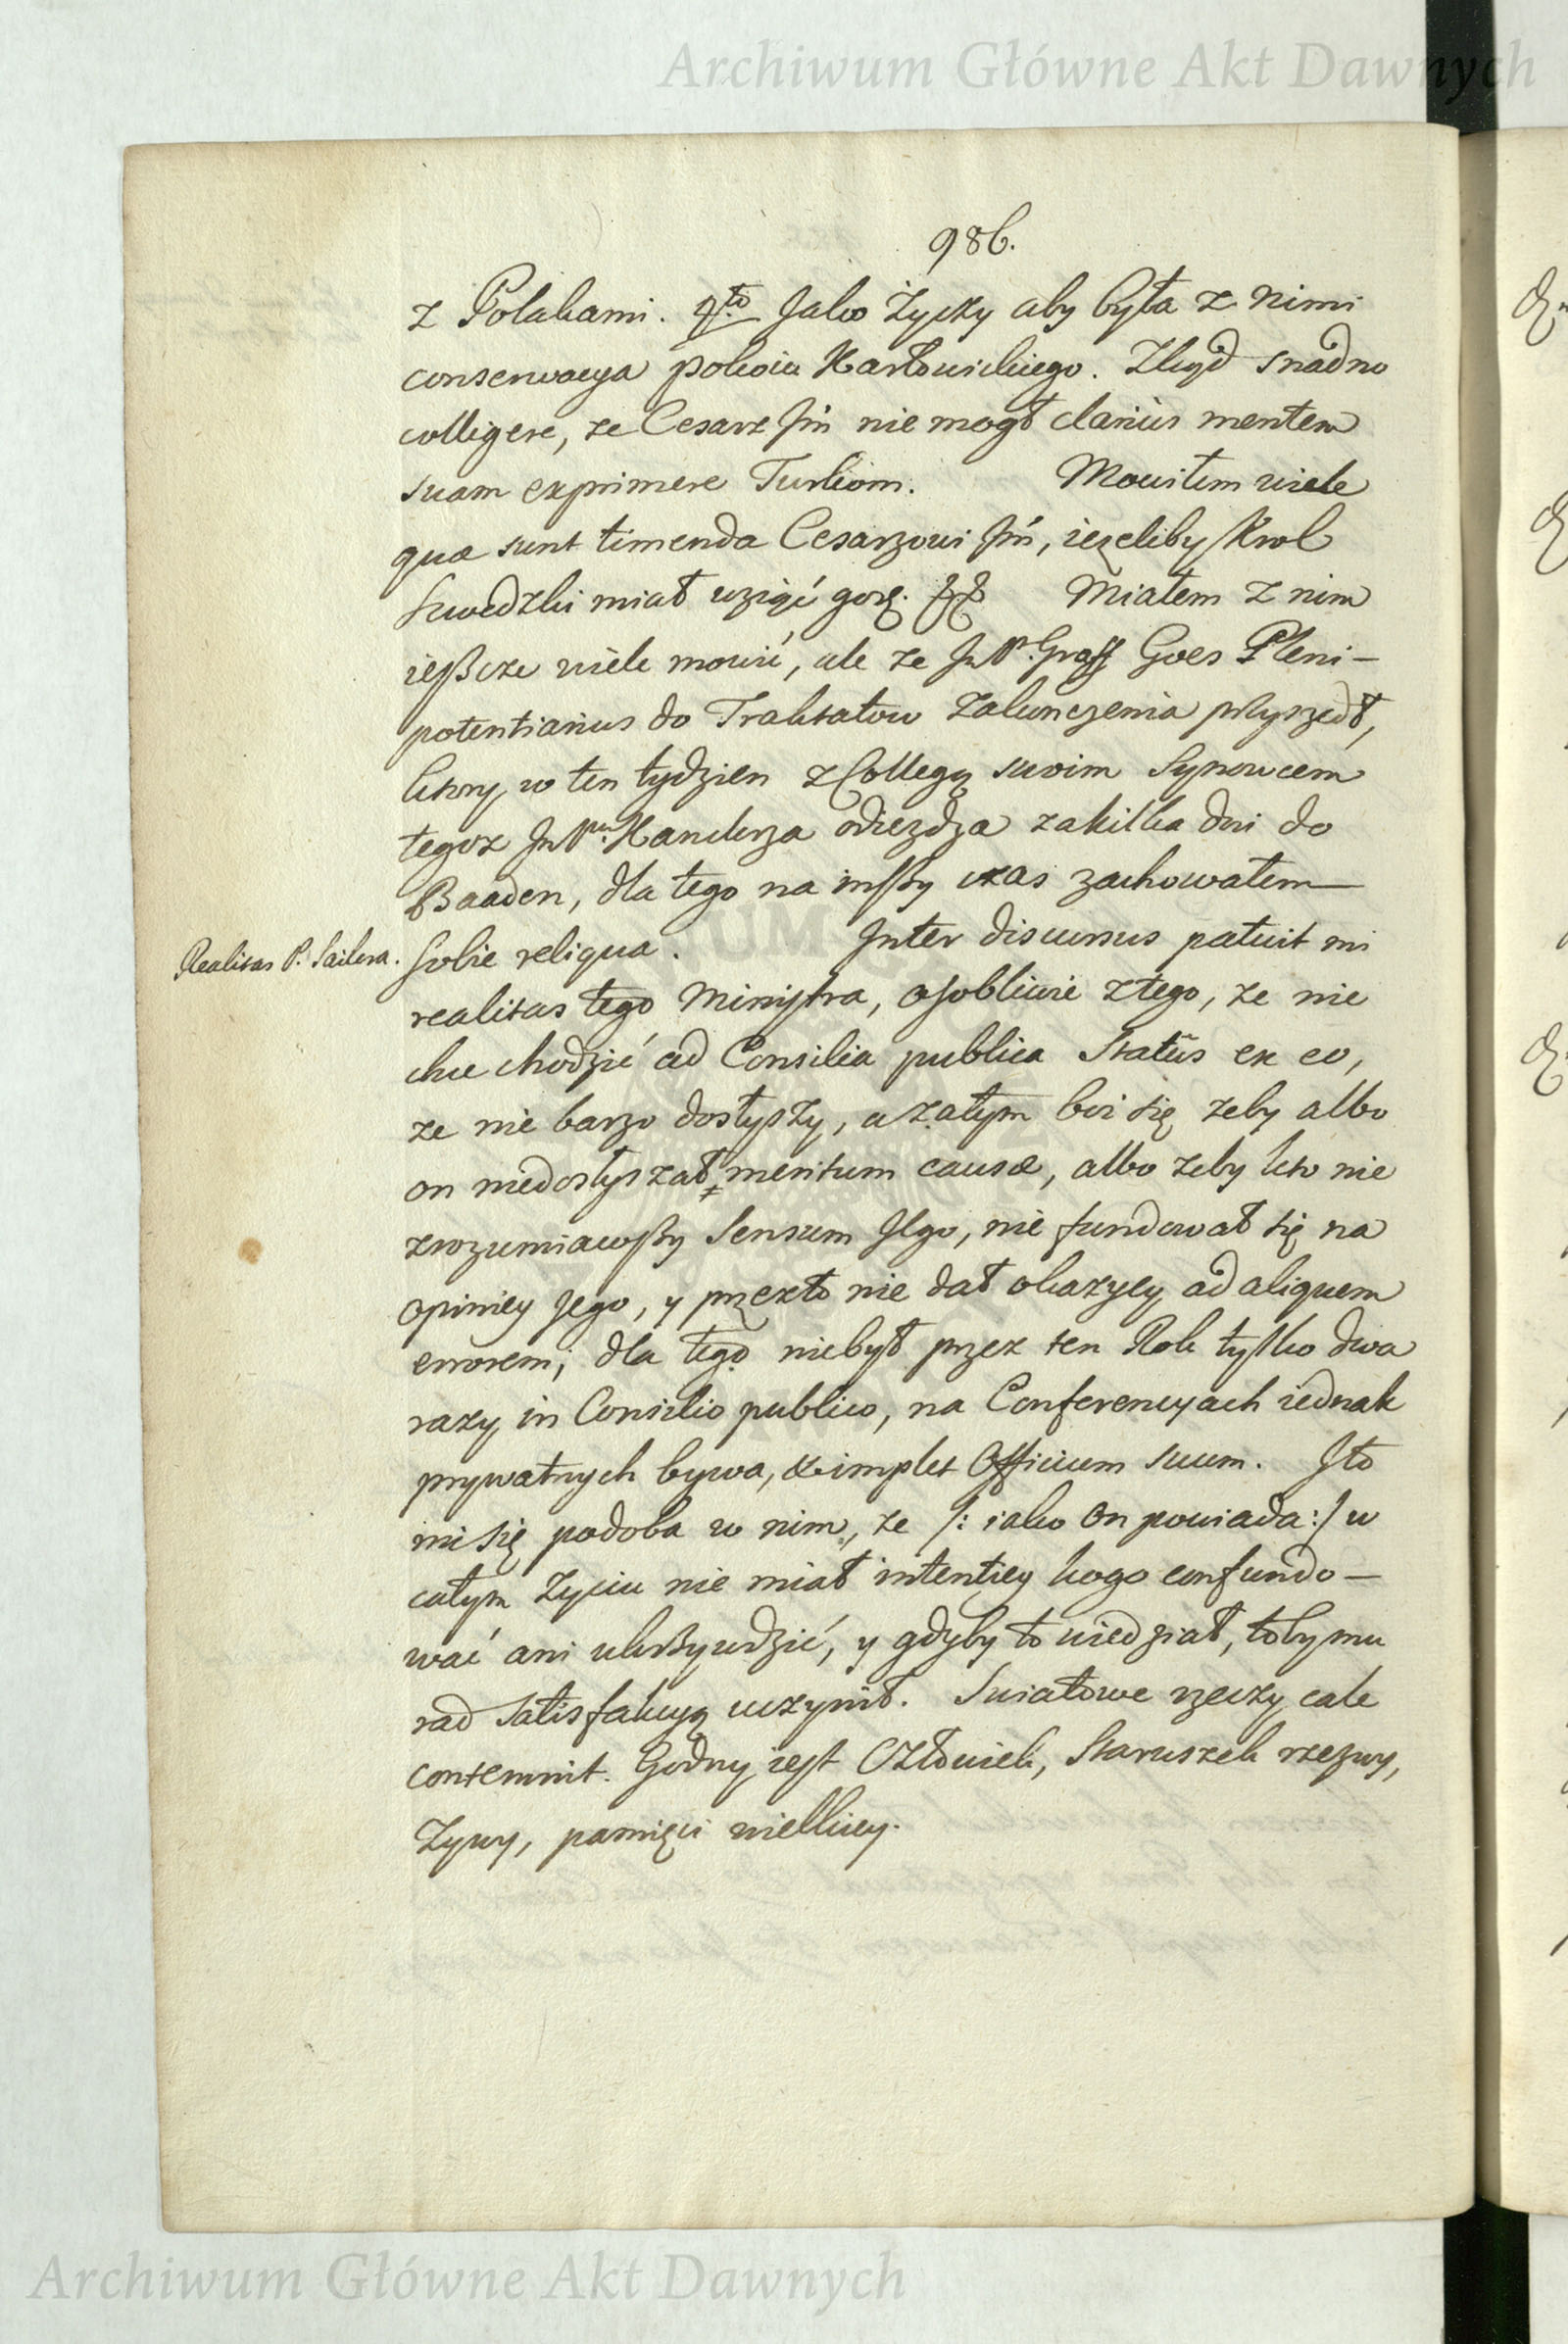 Archiwum Główne Akt Dawnych
986.
z Polakami. 4to Jako życzy aby była z nimi
conserwacya pokoiu Karłowickiego. Zkąd snadno
colligere, że Cesarz Jm̃ nie mogł clarius mentem
suam exprimere Turkom. Mowiłem wiele
quæ sunt timenda Cesarzowi Jm̃, ieżeliby Krol
Szwedzki miał wziąć gorę. Miałem z nim
ießcze wiele mowić, ale że Graff Goes Pleni-
potentiarius do Traktatow zakonczenia przyszedł,
ktory w ten tydzien z Collegą swoim Synowcem
tegoż Kanclerza odiezdza za kilka dni do
Baaden, dla tego na inßy czas zachowałem
Realitas P. Sailera.
sobie reliqua. Inter discursus patuit mi
realitas tego Ministra, osobliwie z tego, że nie
chce chodzić ad Consilia publica Statûs ex eo,
że nie barzo dosłyszy, a zatym boi się żeby albo
on niedosłyszał meritum causæ, albo żeby kto nie
zrozumiawßy Sensum Jego, nie fundował się na
opiniey Jego, y przezto nie dał okazycy ad aliquem
errorem; dla tego niebył przez ten Rok tylko dwa
razy in Consilio publico, na Conferencyach iednak
prywatnych bywa, & implet Officium suum. Jto
mi się podoba w nim, że /: iako On powiada :/ w
całym życiu nie miał intentiey kogo confundo-
wać ani ukrzywdzić, y gdyby to wiedział, toby mu
rad satisfakcyą uczynił. Swiatowe rzeczy cale
contemnit. Godny iest Człowiek, Staruszek rzezwy,
żywy, pamięci wielkiey.
Archiwum Główne Akt Dawnych